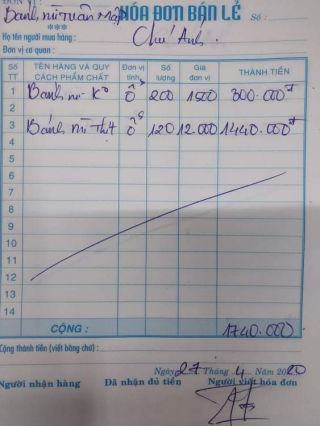 ĐƠN VỊ:
Bánh mì Tuấn Mập HÓA ĐƠN BÁN LẺ Số:
***
Họ tên người mua hàng: Chú Anh.
Đơn vị cơ quan:
Số TT TÊN HÀNG VÀ QUY CÁCH PHẨM CHẤT Đơn vị tính Số lượng Giá đơn vị THÀNH TIỀN
1 Bánh mì Ko ổ 200 1500 300.000đ
2
3 Bánh mì Thịt ổ 120 12.000 1440.000đ
4
5
6
7
8
9
10
11
12
13
14
CỘNG: 1740.000
Cộng thành tiền (viết bằng chữ):
Ngày 27 Tháng 4 Năm 2020
Người nhận hàng Đã nhận đủ tiền Người viết hóa đơn